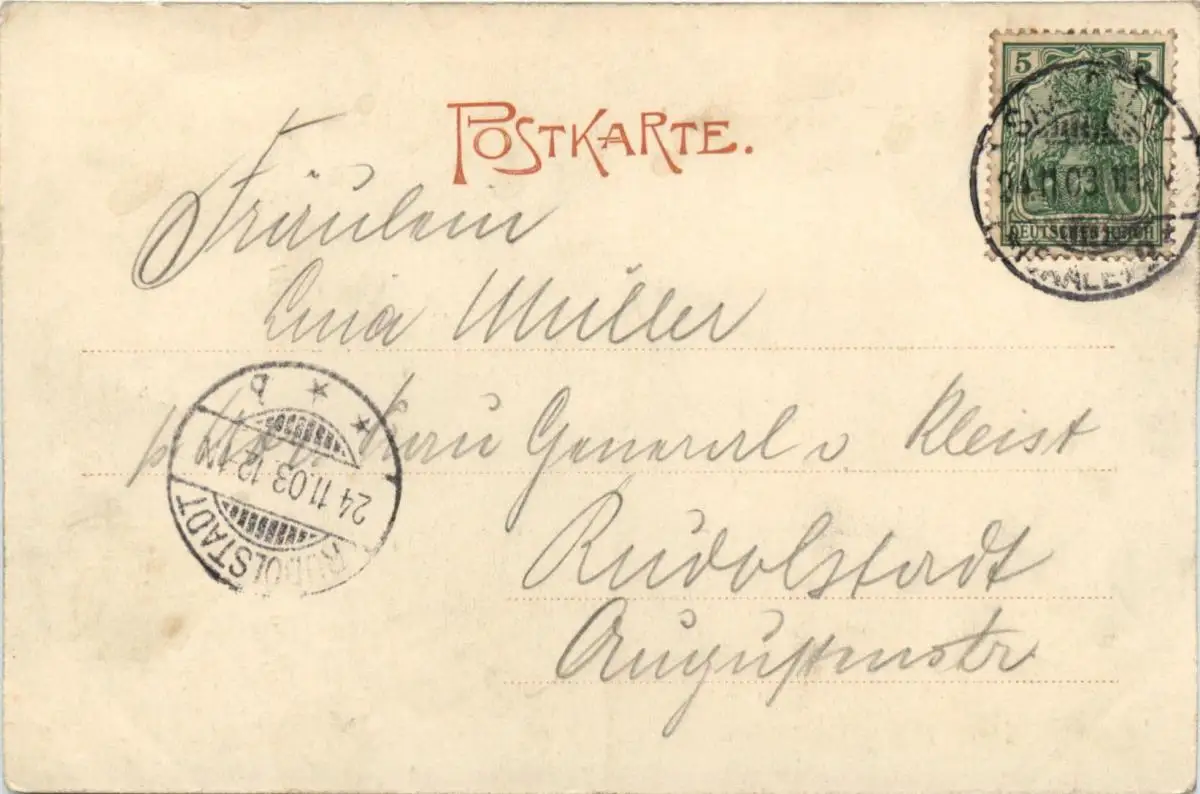 POSTKARTE.
5 5
DEUTSCHES REICH
24.11.03.11-12V
(SAALE)
Fräulein
Lina Müller
Frau General v Kleist
Rudolstadt
Augustinstr
b
24 11.03 12-1N
RUDOLSTADT